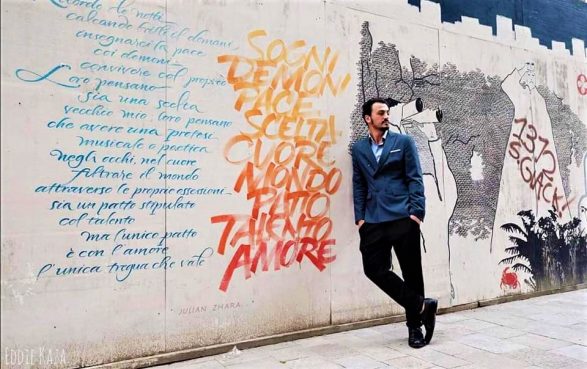 calcando tutte le domani
insegnarci la pace
coi demoni
convivere col proprio
Loro pensano
sia una scelta
vecchio mio, loro pensano
che avere una protesi
musicale o poetica
negli occhi, nel cuore
filtrare il mondo
attraverso le proprie ossessioni
sia un patto stipulato
col talento
ma l'unico patto
è con l'amore
l'unica tregua che vale
SOGNI
DEMONI
PACE
SCELTA
CUORE
MONDO
PATTO
TALENTO
AMORE
JULIAN ZHARA
1312
EDDIE KAJA